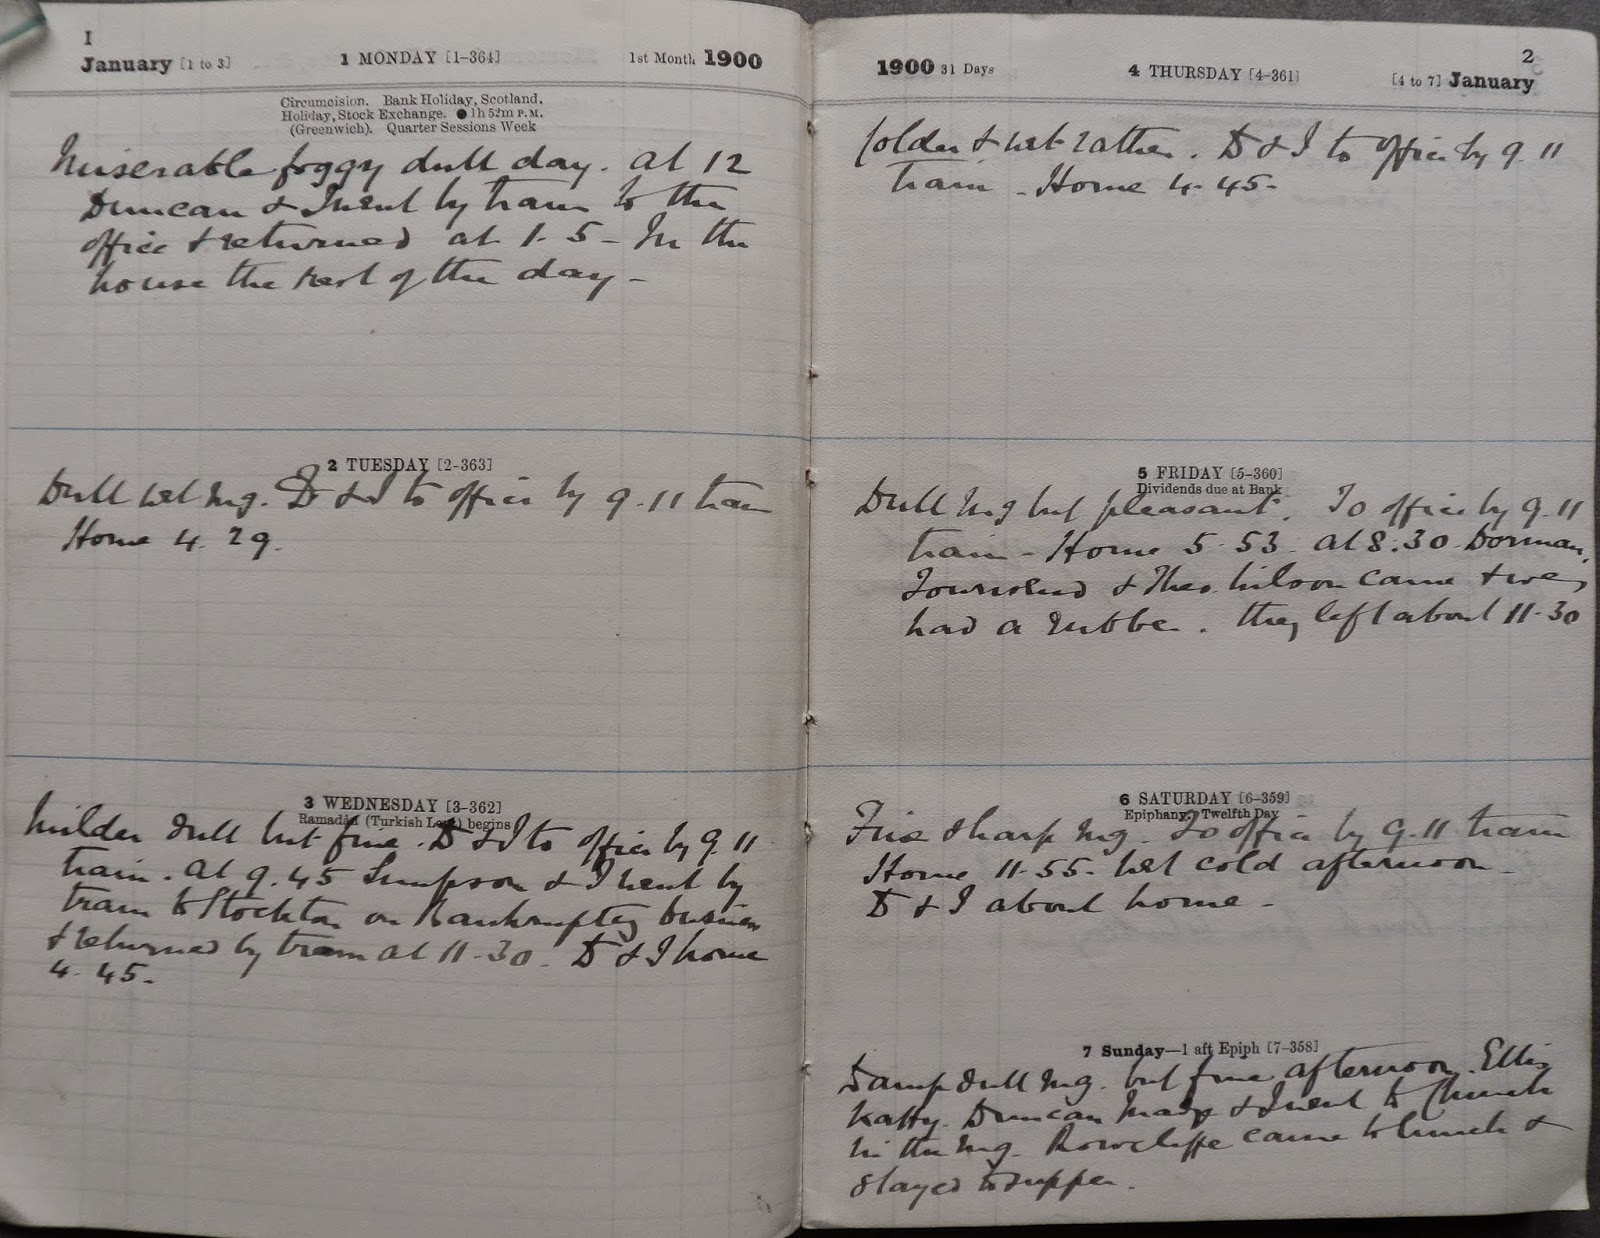 1
January [1 to 3] 1 MONDAY [1-364] 1st Month 1900
Circumcision. Bank Holiday, Scotland.
Holiday, Stock Exchange. ● 1h 52m P.M.
(Greenwich). Quarter Sessions Week
Miserable foggy dull day. at 12
Duncan & I went by tram to the
office & returned at 1.5 - In the
house the rest of the day -
2 TUESDAY [2-363]
Dull wet mg. D & I to office by 9.11 train
Home 4.29.
3 WEDNESDAY [3-362]
Ramadân (Turkish Lent) begins
Milder dull but fine. D & I to office by 9.11
train. at 9.45 Simpson & I went by
tram to Stockton on Bankruptcy business
& returned by tram at 11-30. D & I home
4.45.
2
1900 31 Days 4 THURSDAY [4-361] [4 to 7] January
Colder & wet rather. D & I to office by 9.11
train - Home 4.45-
5 FRIDAY [5-360]
Dividends due at Bank
Dull mg but pleasant. To office by 9.11
train - Home 5.53. at 8.30 Dorman,
Townsend & Theo. Wilson came & we
had a rubber. they left about 11-30
6 SATURDAY [6-359]
Epiphany. Twelfth Day
Fine sharp mg. To office by 9.11 train
Home 11-55- wet cold afternoon -
D & I about home -
7 Sunday—1 aft Epiph [7-358]
Damp dull mg. but fine afternoon. Ellis
Katty. Duncan & I went to Church
in the mg. Rowcliffe came to lunch &
stayed to supper.